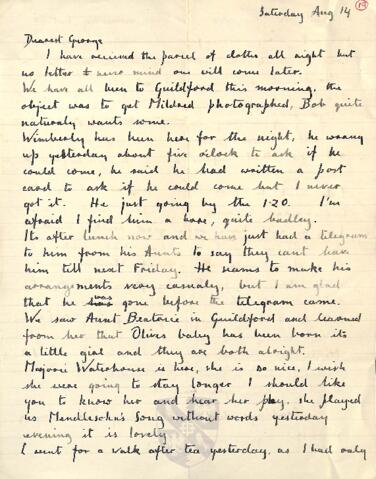 Saturday Aug 14
Dearest George
I have recieved the parcel of cloths all right but
no letter never mind one will come later.
We have all been to Guildford this morning, the
object was to get Mildred photographed, Bob quite
naturaly wants some.
Wimberly has been hear for the night, he wrang
up yesterday about five o'clock to ask if he
could come, he said he had written a post
card to ask if he could come but I never
got it. He just going by the 1.20. I'm
afraid I find him a bore, quite badley.
Its after lunch now and we have just had a telegram
to him from his Aunts to say they cant have
him till next Friday. He seams to make his
arrangements very casualy, but I am glad
that he was gone before the telegram came.
We saw Aunt Beatrice in Guildford and learned
from her that Olives baby has been born its
a little girl and they are both alright.
Marjorie Waterhouse is here, she is so nice, I wish
she were going to stay longer I should like
you to know her and hear her play, she played
us Mendlesohn's Song without words yesterday
evening it is lovely.
I went for a walk after tea yesterday, as I had only